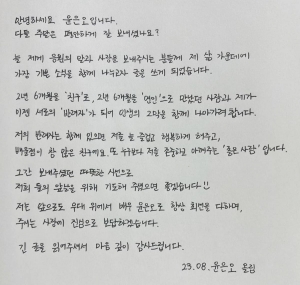 안녕하세요. 윤은오입니다.
다들 주말은 편안하게 잘 보내셨나요?
늘 제게 응원의 말과 사랑을 보내주시는 분들께 제 삶 가운데에
가장 기쁜 소식을 함께 나누고자 글을 쓰게 되었습니다.
2년 6개월을 '친구'로, 2년 6개월을 '연인'으로 만났던 사람과 제가
이젠 서로의 '반려자'가 되어 인생의 2막을 함께 나아가려 합니다.
저의 반려자는 함께 있으면 저를 늘 즐겁고 행복하게 해주고,
배울점이 참 많은 친구예요. 또 누구보다 저를 존중하고 아껴주는 '좋은 사람' 입니다.
그간 보내주셨던 따뜻한 시선으로
저희 둘의 앞날을 위해 기도해 주셨으면 좋겠습니다!!
저는 앞으로도 무대 위에서 배우 윤은오로 항상 최선을 다하며,
주시는 사랑에 진심으로 보답하겠습니다.
긴 글을 읽어주셔서 마음 깊이 감사드립니다.
23.08. 윤은오 올림